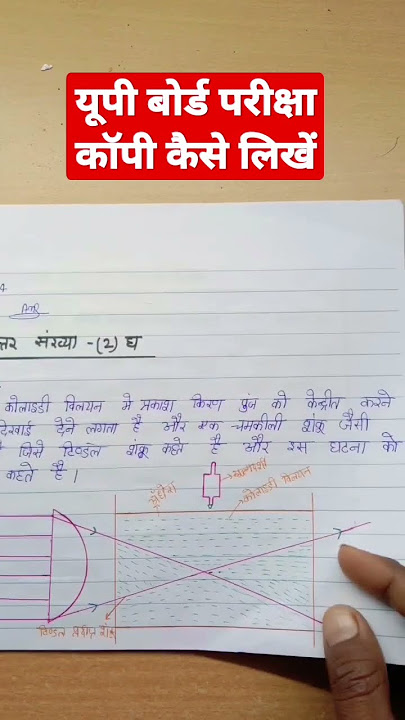 यूपी बोर्ड परीक्षा
कॉपी कैसे लिखें
त्तर संख्या -(2) घ
कोलाइडी विलयन मे प्रकाश किरण पुंज को केन्द्रीत करने
दिखाई देने लगता है और एक चमकीली शंकू जैसी
जिसे टिण्डल शंकू कहते है और इस घटना को
कहते है।
सूक्ष्मदर्शी
कोलाइडी विलयन
टिण्डल